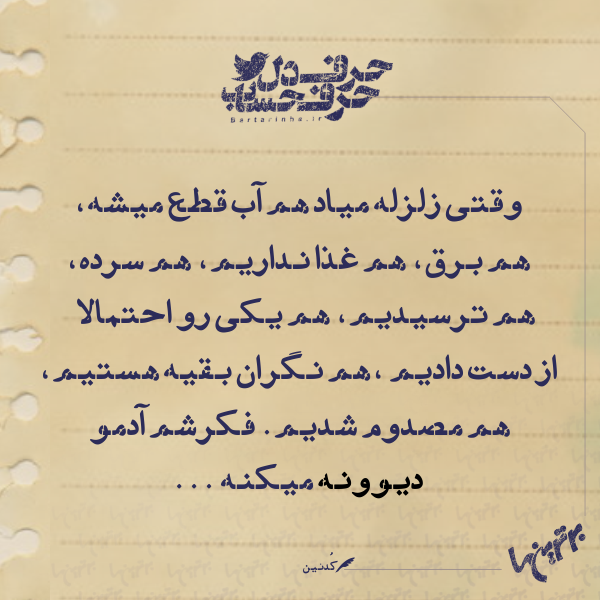 حرف دل
حرف حساب
Bartarinha.ir
وقتی زلزله میاد هم آب قطع میشه،
هم برق، هم غذا نداریم، هم سرده،
هم ترسیدیم، هم یکی رو احتمالا
از دست دادیم ، هم نگران بقیه هستیم،
هم مصدوم شدیم. فکرشم آدمو
دیوونه میکنه ...
کُدنین
برترین‌ها